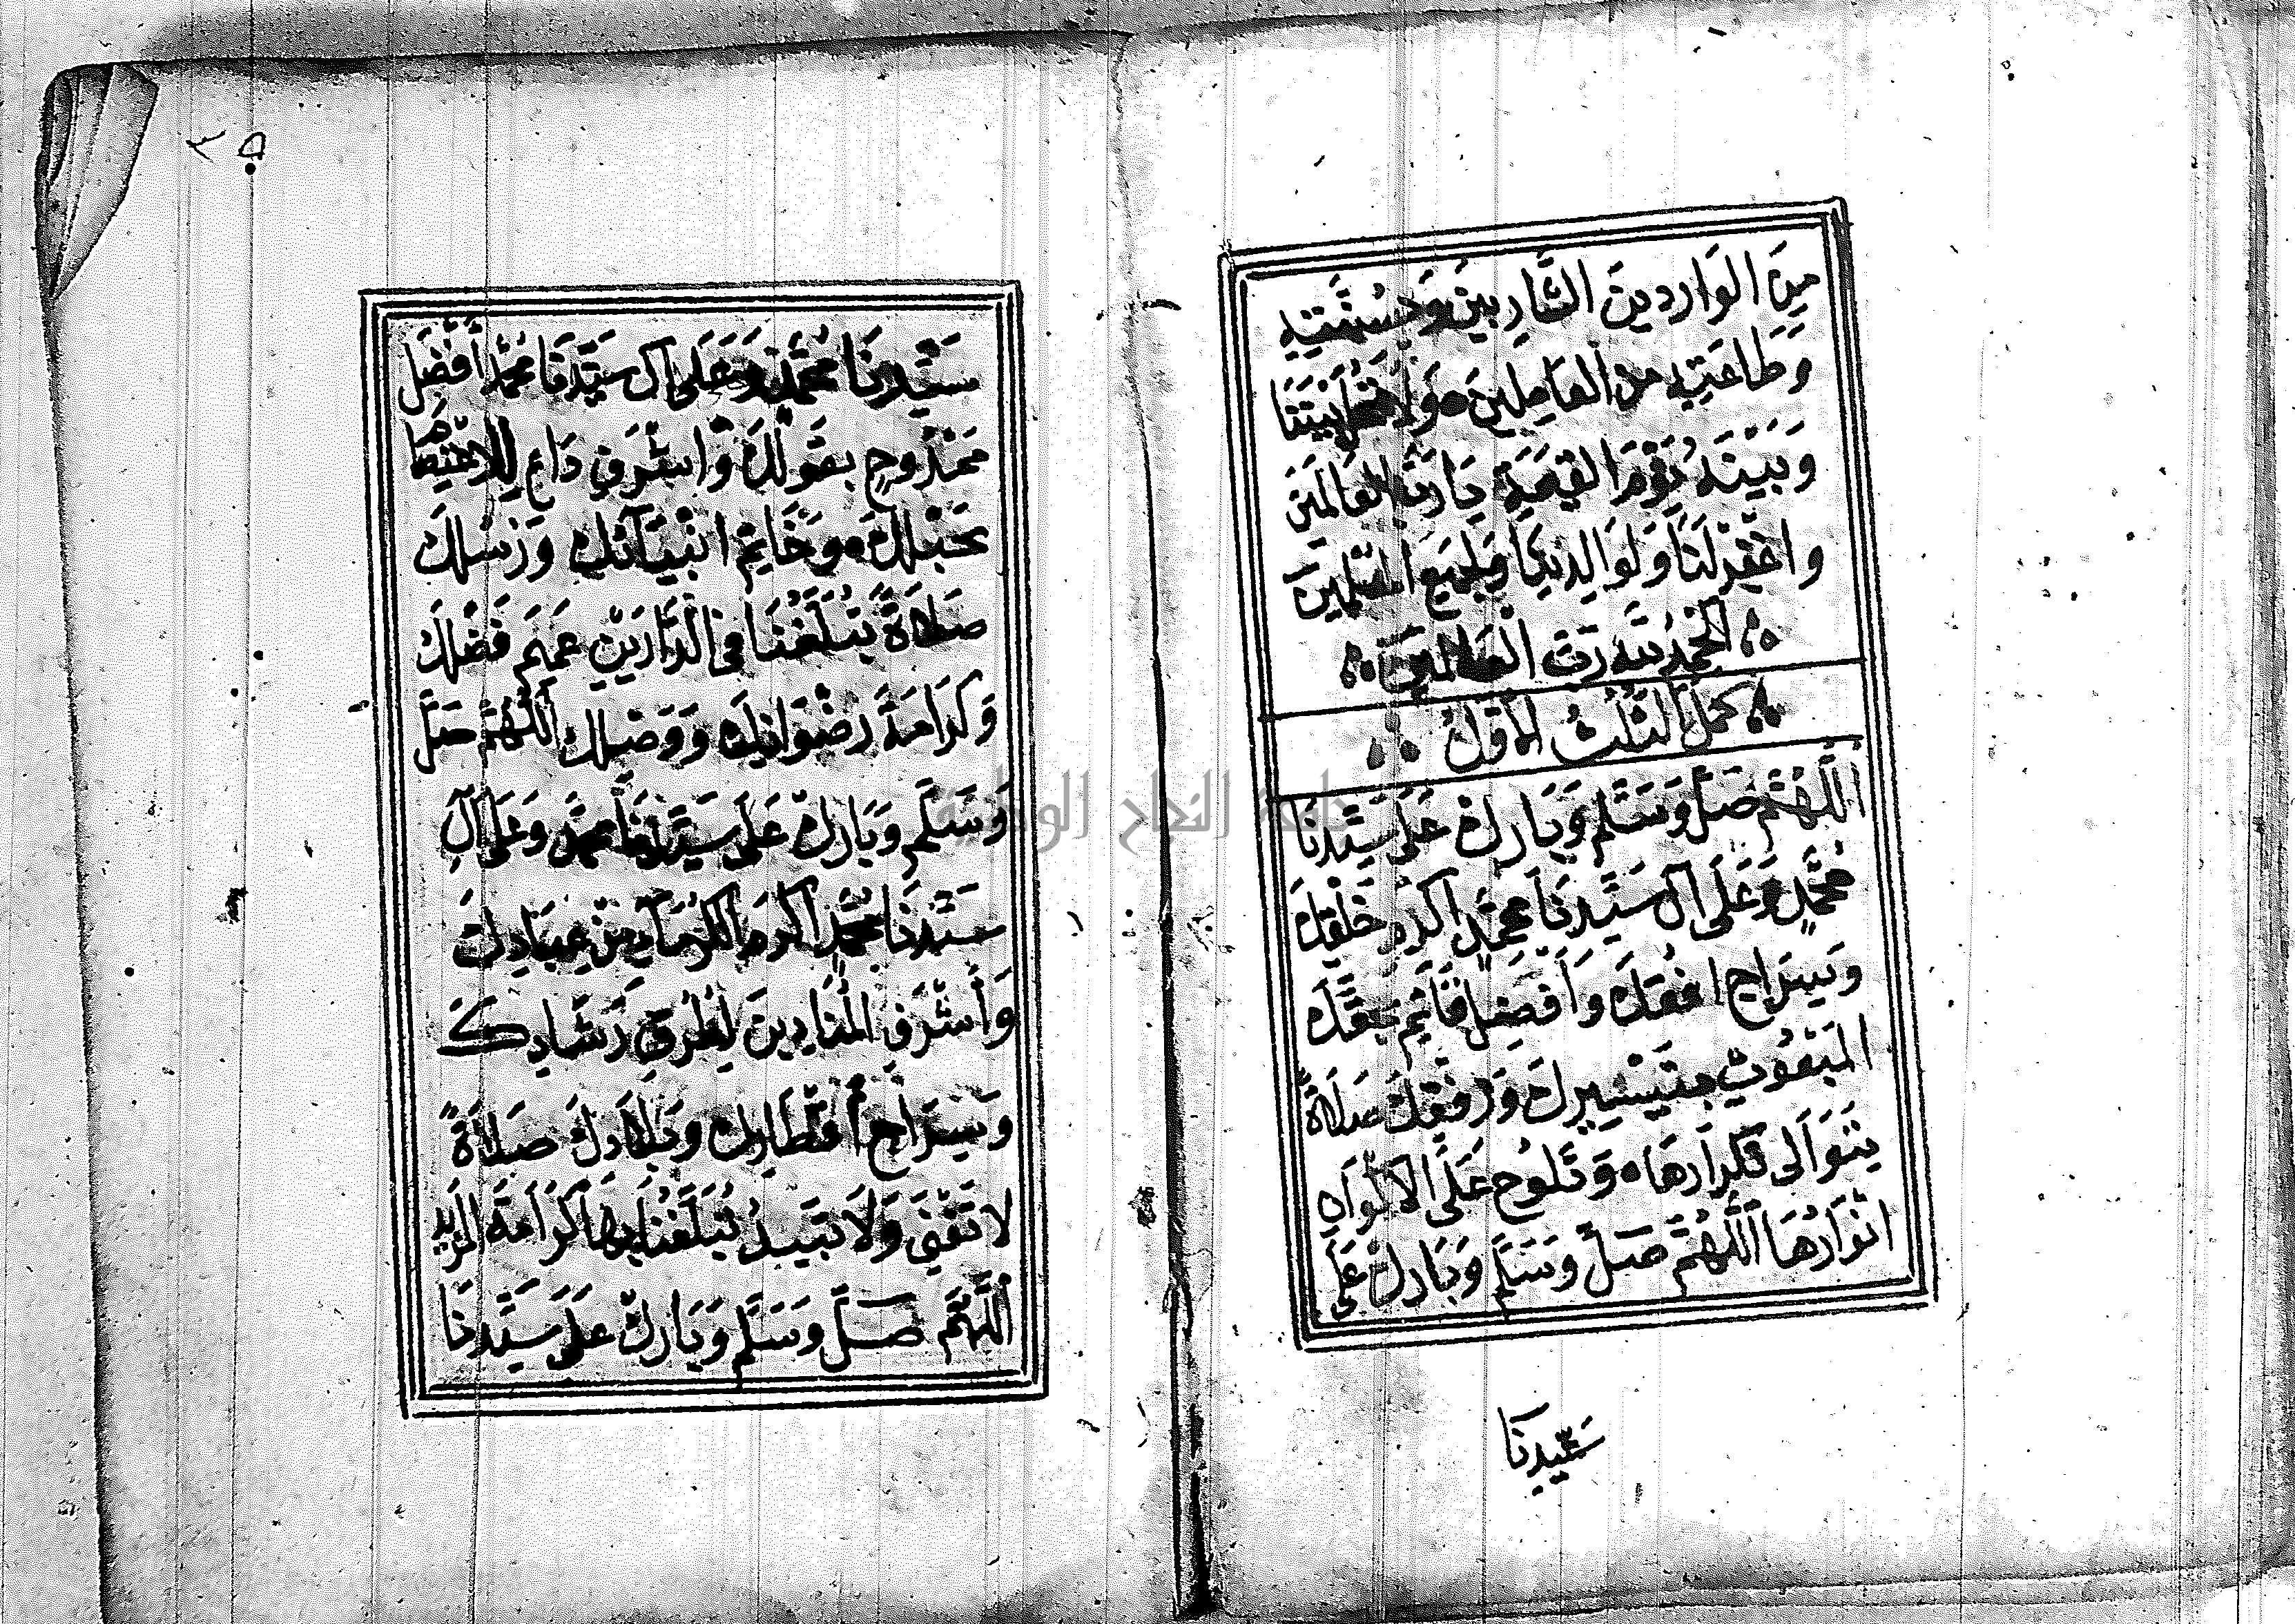 مِنَ الوَارِدينَ الشَّارِبينَ وَحُسْنَتِهِ
وَطَاعَتِهِ مِنَ العَامِلِينَ وَلَا تُفَرِّقْ بَيْنَنَا
وَبَيْنَهُ يَوْمَ القِيمَةِ يَا رَبَّ العَالَمِينَ
وَاغْفِرْ لَنَا وَلِوَالِدَيْنَا وَلِجَمِيعِ المُسْلِمِينَ
الحَمْدُ لِلّهِ رَبِّ الْعَالَمِينَ
كَمُلَ الثُّلُثُ الْأَوَّلُ
اَللّهُمَّ صَلِّ وَسَلِّم وَبَارِكْ عَلَى سَيِّدِنَا
مُحَمَّدٍ وَعَلَى آلِ سَيِّدِنَا مُحَمَّدٍ اكْرَمِ خَلْقِكَ
وَسِرَاجِ افُقِكَ وَأَفْضَلِ قَائِمٍ بِحَقِّكَ
المَبْعُوثِ بِتَيْسِيرِكَ وَرِفْقِكَ صَلَاةً
يَتَوَالَى تَكْرَارُهَا وَتَلُوحُ عَلَى الاكْوَانِ
انْوَارُهَا اَللّهُمَّ صَلِّ وَسَلِّم وَبَارِكْ عَلَى
سَيِّدِنَا
٢٥
سَيِّدِنَا مُحَمَّدٍ وَعَلَى آلِ سَيِّدِنَا مُحَمَّدٍ أَفْضَلِ
مَمْدُوحٍ بِقَوْلِكَ وَاشْرَفِ دَاعٍ لِلاعْتِصَامِ
بِحَبْلِكَ وَخَاتِمِ انْبِيَآئِكَ وَرُسُلِكَ
صَلَاةً تُبَلِّغُنَا فِي الدَّارَيْنِ عَمِيمَ فَضْلِكَ
وَكَرَامَةَ رِضْوَانِكَ وَوَصْلِكَ اَللّهُمَّ صَلِّ
وَسَلِّم وَبَارِكْ عَلَى سَيِّدِنَا مُحَمَّدٍ وَعَلَى آلِ
سَيِّدِنَا مُحَمَّدٍ اكْرَمِ الْكُرَمَآءِ مِنْ عِبَادِكَ
وَأَشْرَفِ المُنَادِينَ لِطُرُقِ رَشَادِكَ
وَسِرَاجِ أَقْطَارِكَ وَبِلَادِكَ صَلَاةً
لَا تَفْنَى وَلَا تَبِيدُ تُبَلِّغُنَا بِهَا كَرَامَةَ المَزِيدِ
اللّهُمَّ صَلِّ وَسَلِّم وَبَارِكْ عَلَى سَيِّدِنَا
جامعة النجاح الوطنية